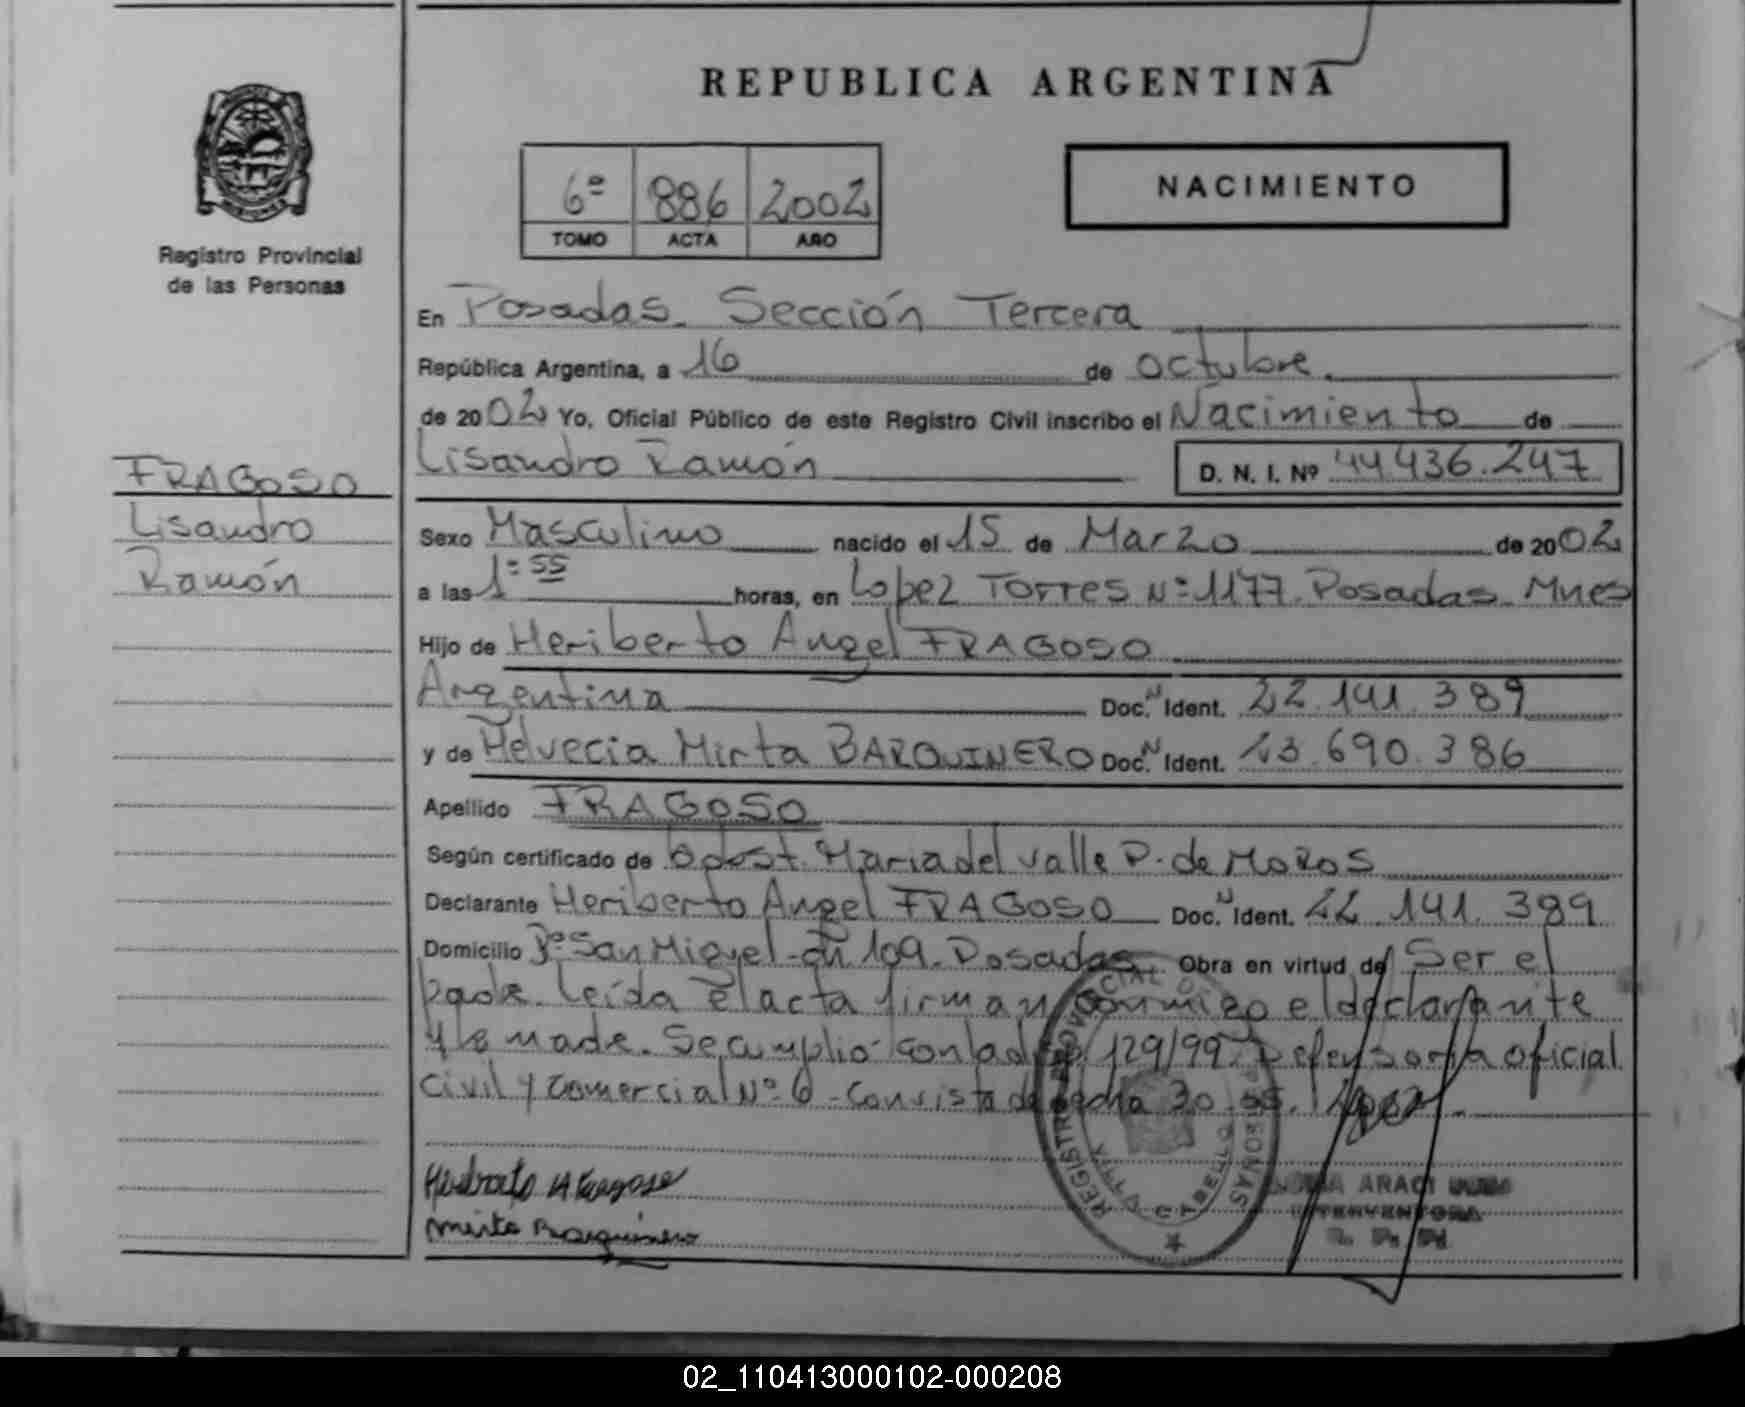 REPUBLICA ARGENTINA
6º 886 2002
TOMO ACTA AÑO
NACIMIENTO
Registro Provincial
de las Personas
En Posadas. Sección Tercera
República Argentina, a 16 de octubre.
de 2002 Yo, Oficial Público de este Registro Civil inscribo el Nacimiento de
Lisandro Ramón D. N. I. Nº 44436.247
FRAGOSO
Lisandro
Ramón
Sexo Masculino nacido el 15 de Marzo de 2002
a las 1:55 horas, en Lopez Torres Nº 1177. Posadas Mnes
Hijo de Heriberto Angel FRAGOSO
Argentina Doc. N Ident. 22.141.389
y de Helvecia Mirta BARQUINERO Doc. N Ident. 13.690.386
Apellido FRAGOSO
Según certificado de Obest. Maria del Valle P. de MOROS
Declarante Heriberto Angel FRAGOSO Doc. N Ident. 22.141.389
Domicilio Bº San Miguel - CH 109. Posadas Obra en virtud de Ser el
padre. Leída el acta firman conmigo el declarante
y la madre. Se cumplió con la 129/99. Defensoria oficial
Civil y Comercial Nº 6 - Con vista de fecha 30
Heriberto A Fragoso
Mirta Barquinero
REGISTRO PROVINCIAL DE PERSONAS
VILLA CABELLO
ARACI
INTERVENTORA
R. P. P.
02_110413000102-000208